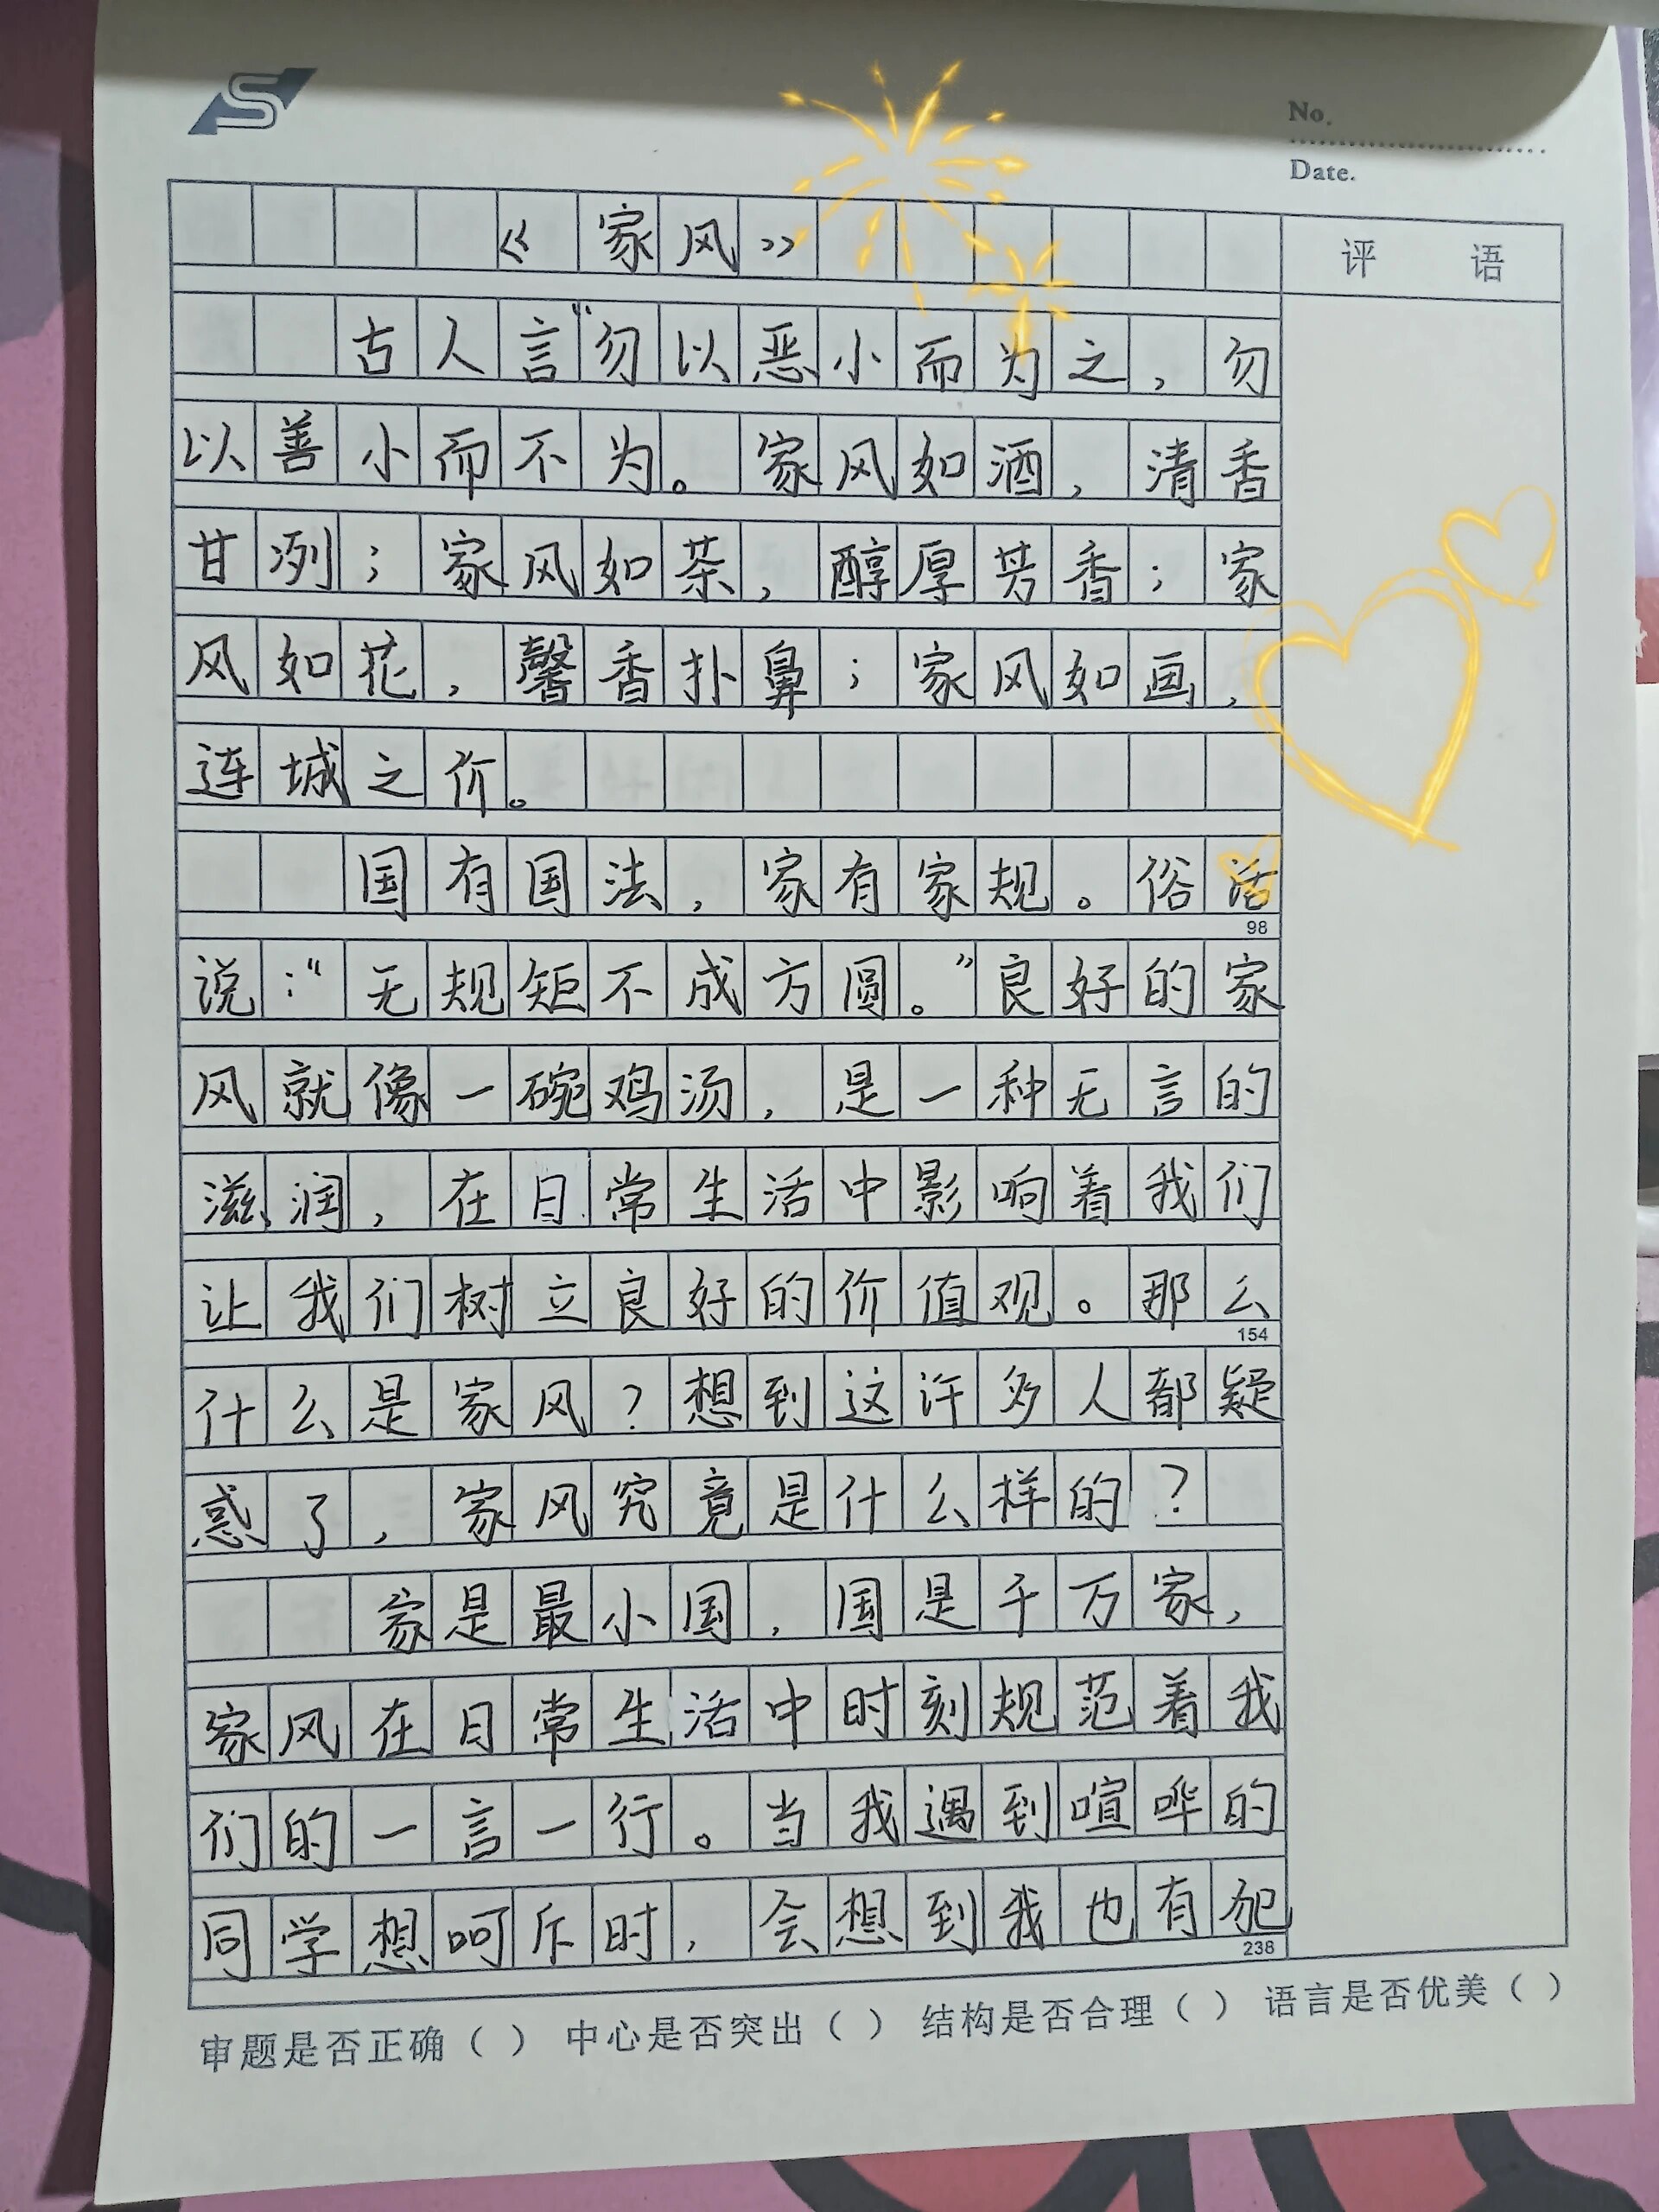 S
No.
Date.
《家风》
评 语
古人言“勿以恶小而为之，勿
以善小而不为。家风如酒，清香
甘冽；家风如茶，醇厚芳香；家
风如花，馨香扑鼻；家风如画，
连城之价。
国有国法，家有家规。俗话
98
说：“无规矩不成方圆。”良好的家
风就像一碗鸡汤，是一种无言的
滋润，在日常生活中影响着我们
让我们树立良好的价值观。那么
154
什么是家风？想到这许多人都疑
惑了，家风究竟是什么样的？
家是最小国，国是千万家，
家风在日常生活中时刻规范着我
们的一言一行。当我遇到喧哗的
同学想呵斥时，会想到我也有犯
238
审题是否正确（ ） 中心是否突出（ ） 结构是否合理（ ） 语言是否优美（ ）